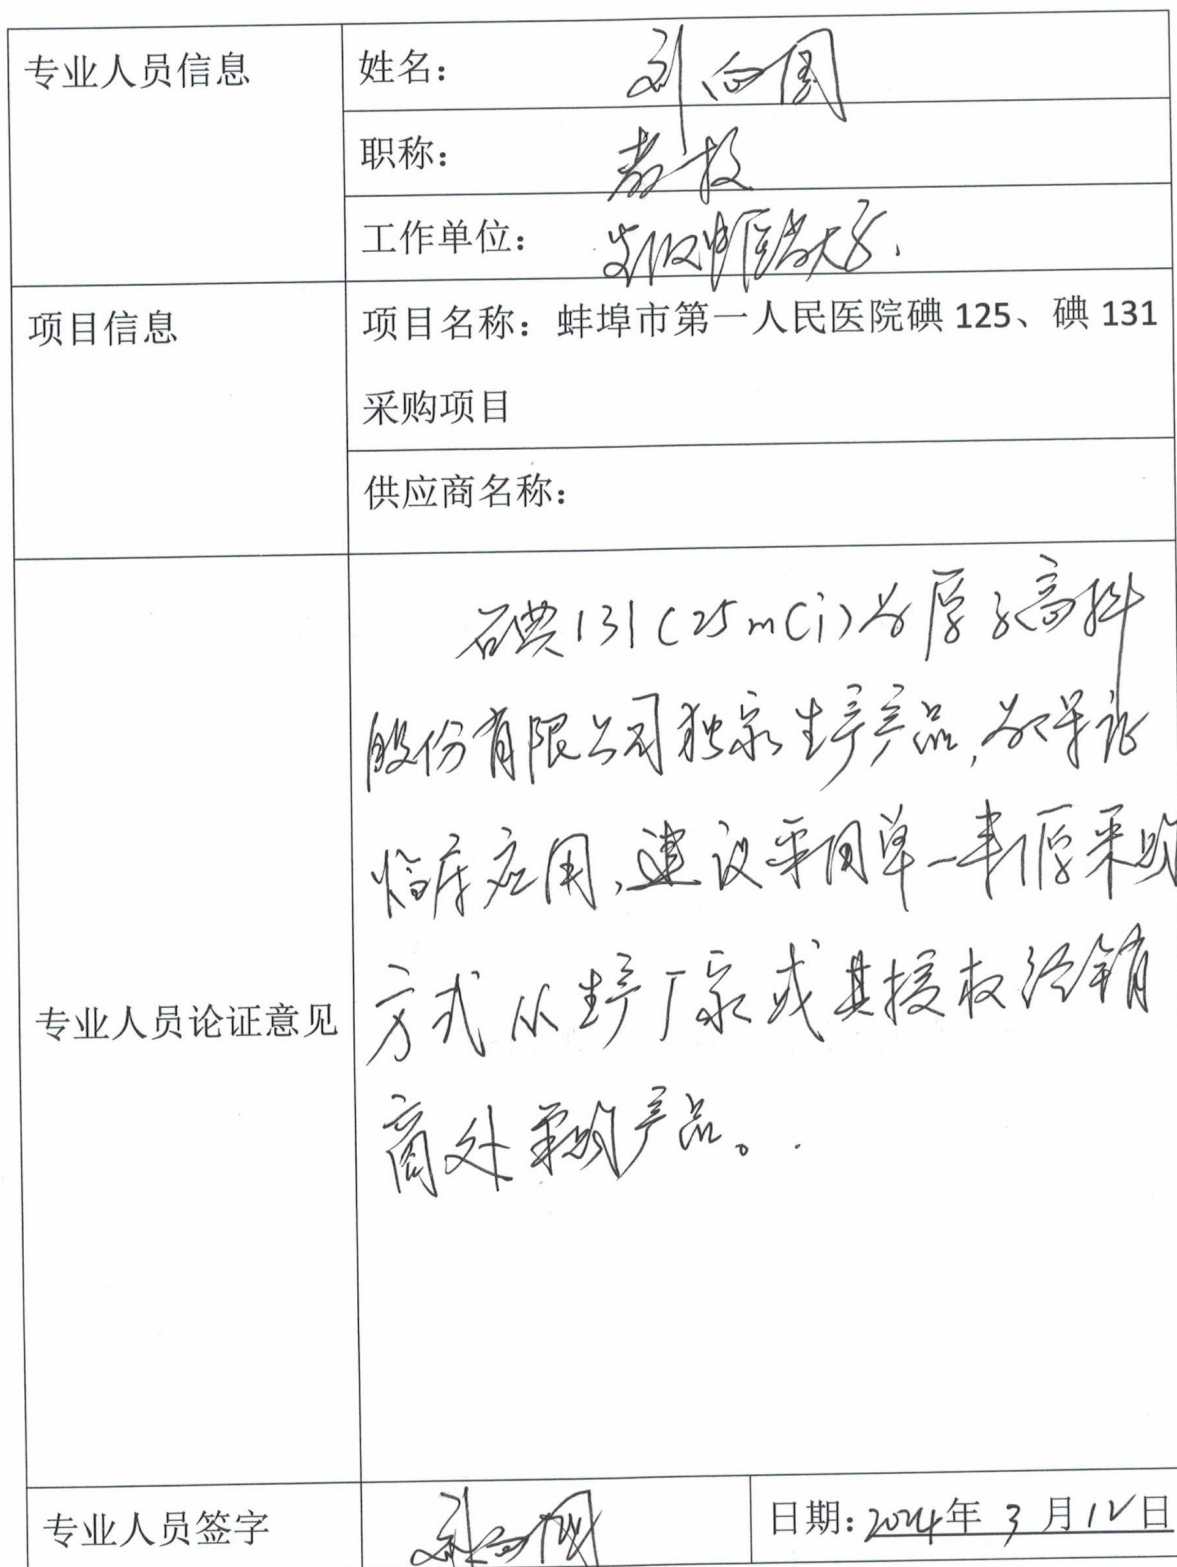 专业人员信息
姓名：刘向国
职称：教授
工作单位：安徽中医药大学.
项目信息
项目名称：蚌埠市第一人民医院碘 125、碘 131
采购项目
供应商名称：
专业人员论证意见
碘131(25mCi)为原子高科
股份有限公司独家生产产品,为保证
临床应用,建议采用单一来源采购
方式从生产厂家或其授权经销
商处采购产品。
专业人员签字
刘向国
日期：2024年 3 月 12 日